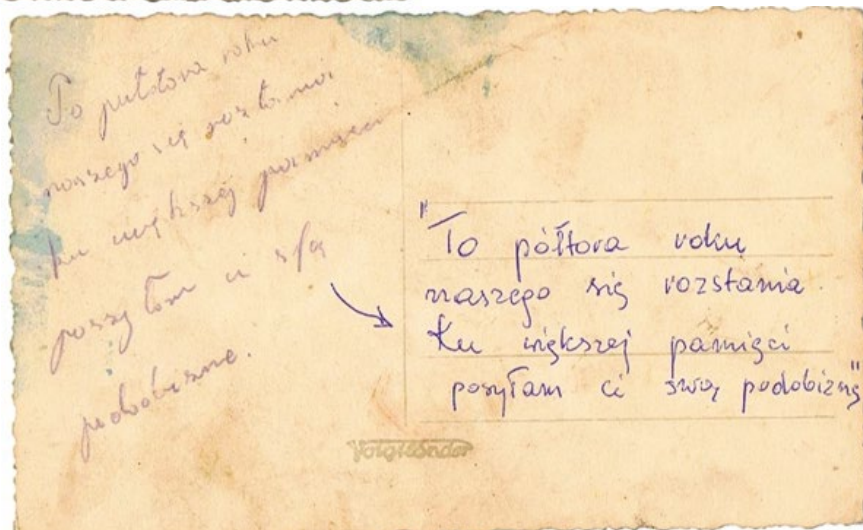 To pułtora roku
naszego się rozstania
ku większej pamięci
posyłam ci sfą
podobizne.
"To półtora roku
naszego się rozstania
Ku większej pamięci
posyłam ci swoą podobiznę"
Voigtländer